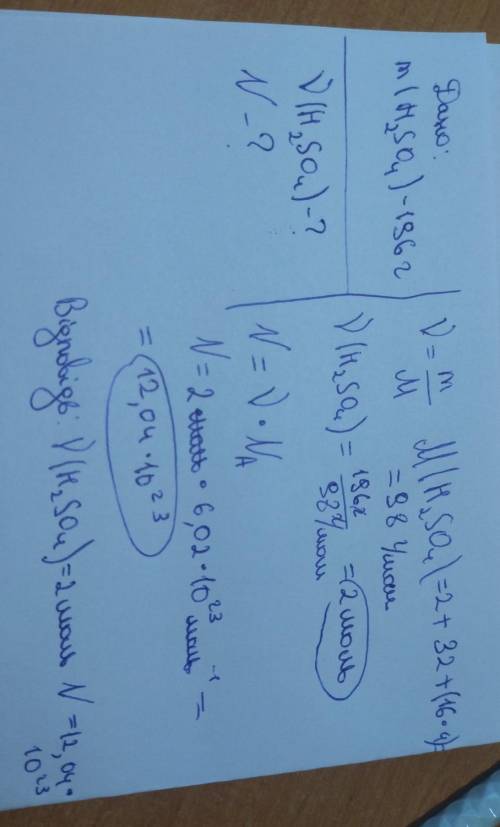 Дано:
m(H₂SO₄) - 196г
ν(H₂SO₄) - ?
N - ?
ν = m/M M(H₂SO₄) = 2 + 32 + (16·4) =
= 98 г/моль
ν(H₂SO₄) = 196г / 98 г/моль = 2 моль
N = ν · N_A
N = 2 моль · 6,02 · 10²³ моль⁻¹ =
= 12,04 · 10²³
Відповідь: ν(H₂SO₄) = 2 моль N = 12,04 ·
10²³